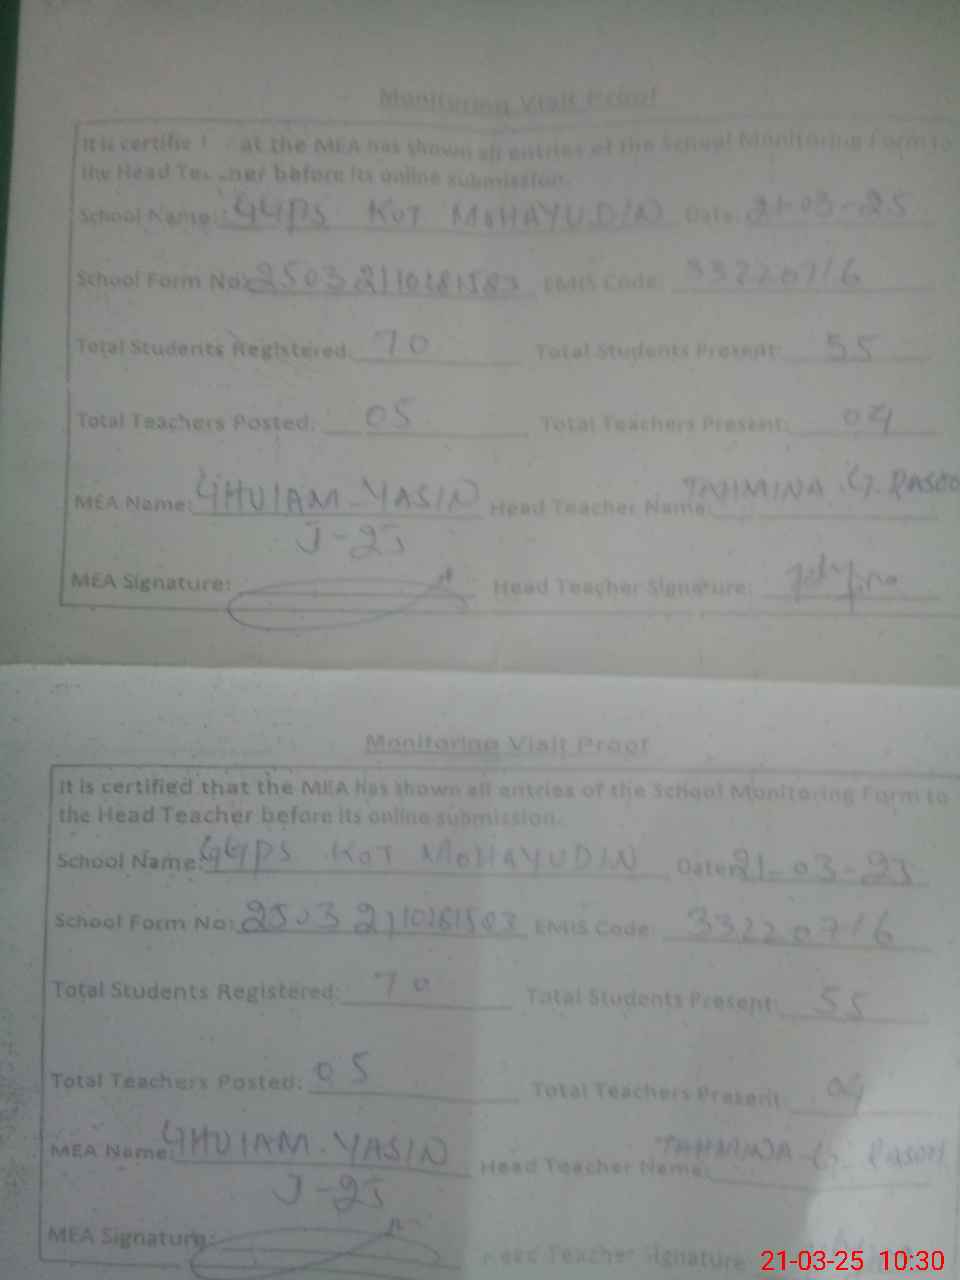 Monitoring Visit Proof
It is certifie at the MEA has shown all entries of the School Monitoring Form to
the Head before its online submission.
School Name: GGPS KOT MOHAYUDIN Date: 21-03-25
School Form No: 25032110281583 EMIS Code: 33220716
Total Students Registered: 70 Total Students Present: 55
Total Teachers Posted: 05 Total Teachers Present: 04
MEA Name: GHULAM YASIN Head Teacher Name: TAHMINA G. RASOO
J-25
MEA Signature: Head Teacher Signature:
Monitoring Visit Proof
It is certified that the MEA has shown all entries of the School Monitoring Form to
the Head Teacher before its online submission.
School Name: GGPS KOT MOHAYUDIN Date: 21-03-25
School Form No: 25032110281583 EMIS Code: 33220716
Total Students Registered: 70 Total Students Present: 55
Total Teachers Posted: 05 Total Teachers Present: 04
MEA Name: GHULAM. YASIN Head Teacher Name: TAHMINA G. RASOOL
J-25
MEA Signature: Head Teacher Signature
21-03-25 10:30